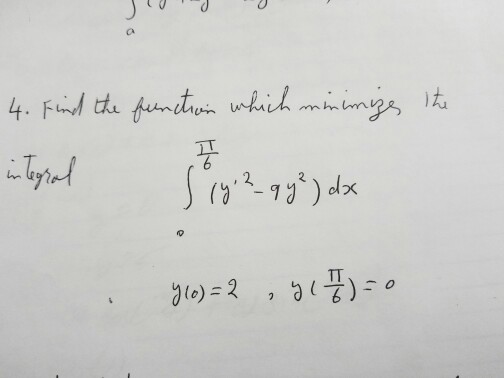 a
4. Find the function which minimizes the
integral ∫₀^{π/6} (y'² - 9y²) dx
y(0) = 2 , y(π/6) = 0